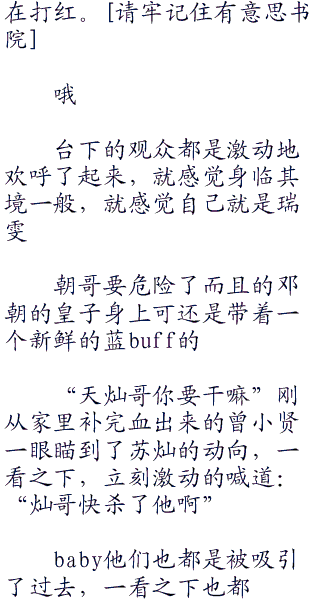 在打红。[请牢记住有意思书
院]
哦
台下的观众都是激动地
欢呼了起来，就感觉身临其
境一般，就感觉自己就是瑞
雯
朝哥要危险了而且的邓
朝的皇子身上可还是带着一
个新鲜的蓝buff的
“天灿哥你要干嘛”刚
从家里补完血出来的曾小贤
一眼瞄到了苏灿的动向，一
看之下，立刻激动的喊道：
“灿哥快杀了他啊”
baby他们也都是被吸引
了过去，一看之下也都